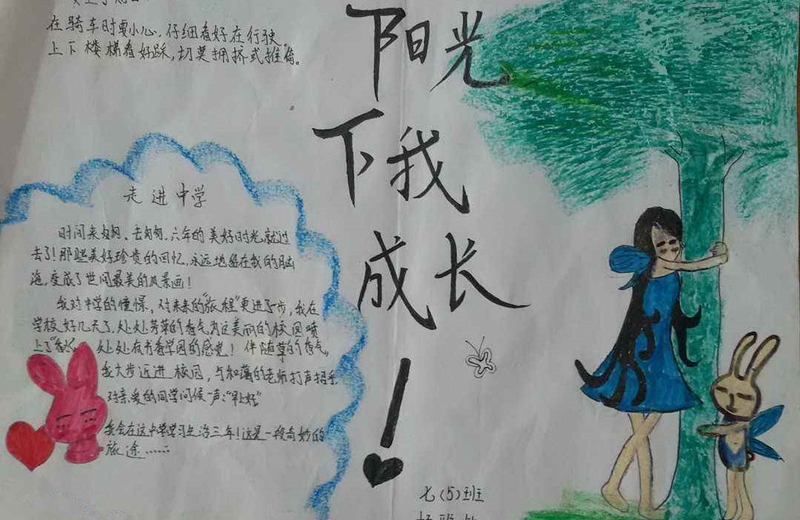 在骑车时要小心,仔细看好在行驶
上下楼梯看好踩,切莫拥挤或推
阳光
下我
成长
!
走进中学
时间来匆匆、去匆匆、六年的美好时光就过
去了!那些美好珍贵的回忆,永远地留在我的脑
海,变成了世间最美的风景画!
我对中学的憧憬,对未来的"旅程"更进了一步,我在
学校好几天了,处处芳草的香气为这美丽的校园喷
上了"香水",处处有书香学园的感觉!伴随草的香气,
我大步迈进校园,与和蔼的老师打声招乎
对亲爱的同学问候一声:"早上好"
我会在这中学学习生活三年!这是一段奇妙的
旅途……
七(5)班